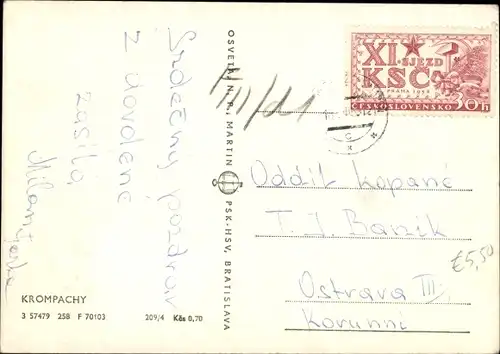 Srdečný pozdrav
z dovolené
zasílá
XI.
SJEZD
KSČ
PRAHA 1958
ČESKOSLOVENSKO 30 h
Oddíl kopané
T. J. Baník
Ostrava III.
Korunní
€5,50
OSVETA, N. P., MARTIN
PSK-HSV, BRATISLAVA
KROMPACHY
3 57479 258 F 70103 209/4 Kčs 0,70